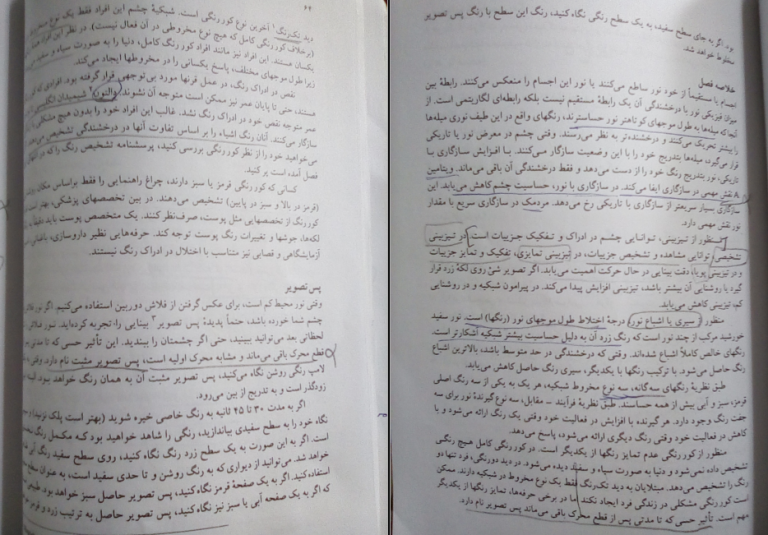 دید تک‌رنگ۱ آخرین نوع کوررنگی است. شبکیهٔ چشم این افراد فقط یک نوع
(برخلاف کوررنگی کامل که هیچ نوع مخروطی در آن فعال نیست). در نظر این افراد
یکسان هستند. این افراد نیز مانند افراد کوررنگ کامل، دنیا را به صورت سیاه و سفید
زیرا طول موجهای مختلف، پاسخ یکسانی را در مخروطها ایجاد می‌کند.
نقص در ادراک رنگ، در عمل قرنها مورد بی‌توجهی قرار گرفته بود. افرادی که
هستند، حتی تا پایان عمر نیز ممکن است متوجه آن نشوند. دالتون۲ شیمیدان انگلیسی
عمر متوجه نقص خود در ادراک رنگ نشد. غالب این افراد خود را بدون هیچ مشکلی
سازگار می‌کنند. آنان رنگ اشیاء را بر اساس تفاوت آنها در درخشندگی تشخیص
می‌خواهید خود را از نظر کوررنگی بررسی کنید، پرسشنامه تشخیص رنگ را که در
فصل آمده است پر کنید.
کسانی که کوررنگی قرمز یا سبز دارند، چراغ راهنمایی را فقط براساس مکان
(قرمز در بالا و سبز در پایین) تشخیص می‌دهند. در بین تخصصهای پزشکی، بهتر است
کوررنگ از تخصصهایی مثل پوست، صرف‌نظر کنند. یک متخصص پوست باید دقیقاً به
لکه‌ها، جوشها و تغییرات رنگ پوست توجه کند. حرفه‌هایی نظیر داروسازی،
آزمایشگاهی و قصابی نیز متناسب با اختلال در ادراک رنگ نیستند.
پس تصویر
وقتی نور محیط کم است، برای عکس گرفتن از فلاش دوربین استفاده می‌کنیم. اگر نور فلاش
چشم شما خورده باشد، حتماً پدیدهٔ پس تصویر۳ بینایی را، تجربه کرده‌اید.
لحظاتی بعد می‌توانید ببینید، حتی اگر چشمتان را ببندید. این تأثیر حسی که تا مدتی
قطع محرک باقی می‌ماند و مشابه محرک اولیه است، پس تصویر مثبت نام دارد. وقتی
لامپ رنگی روشن نگاه می‌کنید، پس تصویر مثبت آن به همان رنگ خواهد بود. البته
زودگذر است و به تدریج از بین می‌رود.
اگر به مدت ۳۰ تا ۴۵ ثانیه به رنگ خاصی خیره شوید (بهتر است پلک نزنید)
نگاه خود را به سطح سفیدی بیاندازید، رنگی را شاهد خواهید بود که مکمل رنگ
است. اگر به این صورت به یک سطح زرد رنگ نگاه کنید، روی سطح سفید رنگ آبی
خواهد شد. می‌توانید از دیواری که به رنگ روشن و تا حدی سفید است، به عنوان
استفاده کنید. اگر به یک صفحهٔ قرمز نگاه کنید، پس تصویر حاصل سبز خواهد بود.
که اگر به یک صفحه آبی یا سبز نیز نگاه کنید، پس تصویر حاصل به ترتیب زرد و قرمز
بود. اگر به جای سطح سفید، به یک سطح رنگی نگاه کنید، رنگ این سطح با رنگ پس تصویر
مخلوط خواهد شد.
خلاصه فصل
اجسام یا مستقیماً از خود نور ساطع می‌کنند یا نور این اجسام را منعکس می‌کنند. رابطهٔ بین
میزان فیزیکی نور با درخشندگی آن یک رابطهٔ مستقیم نیست بلکه رابطه‌ای لگاریتمی است. از
آنجا که میله‌ها به طول موجهای کوتاهتر نور حساسترند، رنگهای واقع در این طیف نوری میله‌ها
را بیشتر تحریک می‌کنند و درخشنده‌تر به نظر می‌رسند. وقتی چشم در معرض نور یا تاریکی
قرار می‌گیرد، میله‌ها بتدریج خود را با این وضعیت سازگار می‌کنند. با افزایش سازگاری با
تاریکی، نور بتدریج رنگ خود را از دست می‌دهد و فقط درخشندگی آن باقی می‌ماند. ویتامین
A نقش مهمی در سازگاری ایفا می‌کند. در سازگاری با نور، حساسیت چشم کاهش می‌یابد. این
سازگاری بسیار سریعتر از سازگاری با تاریکی رخ می‌دهد. مردمک در سازگاری سریع با مقدار
نور نقش مهمی دارد.
منظور از تیزبینی، توانایی چشم در ادراک و تفکیک جزییات است. در تیزبینی
تشخیصی توانایی مشاهده و تشخیص جزییات، در تیزبینی تمایزی، تفکیک و تمایز جزییات
و در تیزبینی پویا، دقت بینایی در حال حرکت اهمیت می‌یابد. اگر تصویر شئ روی لکهٔ زرد قرار
گیرد یا روشنایی آن بیشتر باشد، تیزبینی افزایش پیدا می‌کند. در پیرامون شبکیه و در روشنایی
کم، تیزبینی کاهش می‌یابد.
منظور از سیری یا اشباع نور، درجهٔ اختلاط طول موجهای نور (رنگها) است. نور سفید
خورشید مرکب از چند نور است که رنگ زرد آن به دلیل حساسیت بیشتر شبکیه آشکارتر است.
رنگهای خالص کاملاً اشباع شده‌اند. وقتی که درخشندگی در حد متوسط باشد، بالاترین اشباع
رنگ حاصل می‌شود. با ترکیب رنگها با یکدیگر، سیری رنگ حاصل کاهش می‌یابد.
طبق نظریهٔ رنگهای سه‌گانه، سه نوع مخروط شبکیه، هر یک به یکی از سه رنگ اصلی
قرمز، سبز و آبی بیش از همه حساسند. طبق نظریهٔ فرآیند - مقابل، سه نوع گیرندهٔ نور برای سه
جفت رنگ وجود دارد. هر گیرنده با افزایش در فعالیت خود وقتی یک رنگ ارائه می‌شود و با
کاهش در فعالیت خود وقتی رنگ دیگری ارائه می‌شود، پاسخ می‌دهد.
منظور از کوررنگی عدم تمایز رنگها از یکدیگر است. در کوررنگی کامل هیچ رنگی
تشخیص داده نمی‌شود و دنیا به صورت سیاه و سفید دیده می‌شود. در دید دورنگی، فرد تنها دو
رنگ را تشخیص می‌دهد. مبتلایان به دید تک‌رنگ فقط یک نوع مخروط در شبکیه دارند. ممکن
است کوررنگی مشکلی در زندگی فرد ایجاد نکند اما در برخی حرفه‌ها، تمایز رنگها از یکدیگر
مهم است. تأثیر حسی که تا مدتی پس از قطع محرک باقی می‌ماند پس تصویر نام دارد.